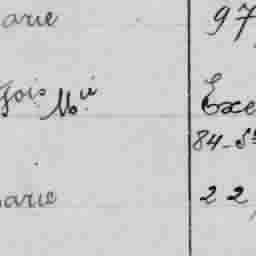 arie 97
Fois Mie Exe
84-5
arie 22